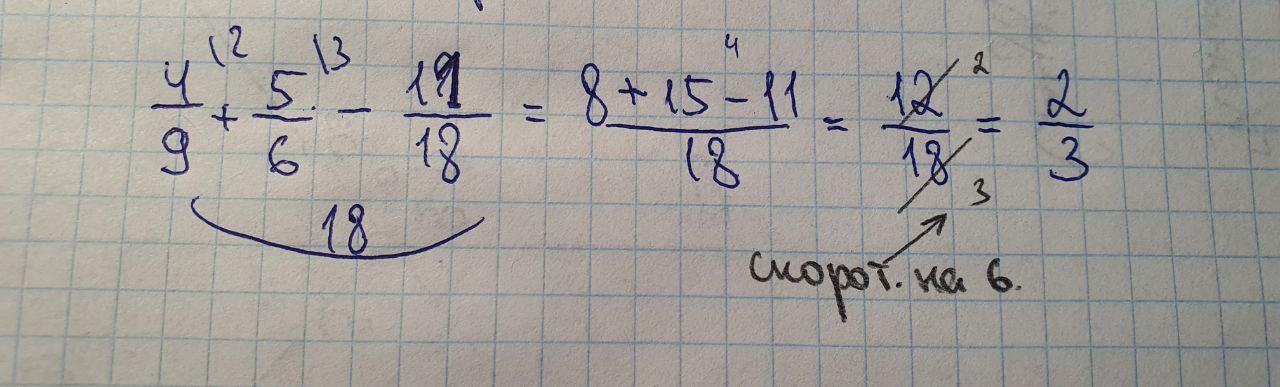 4/9 \2 + 5/6 \3 - 11/18 = (8 + 15 - 11)/18 = 12/18 = 2/3
4
2
3
18
скорот. на 6.